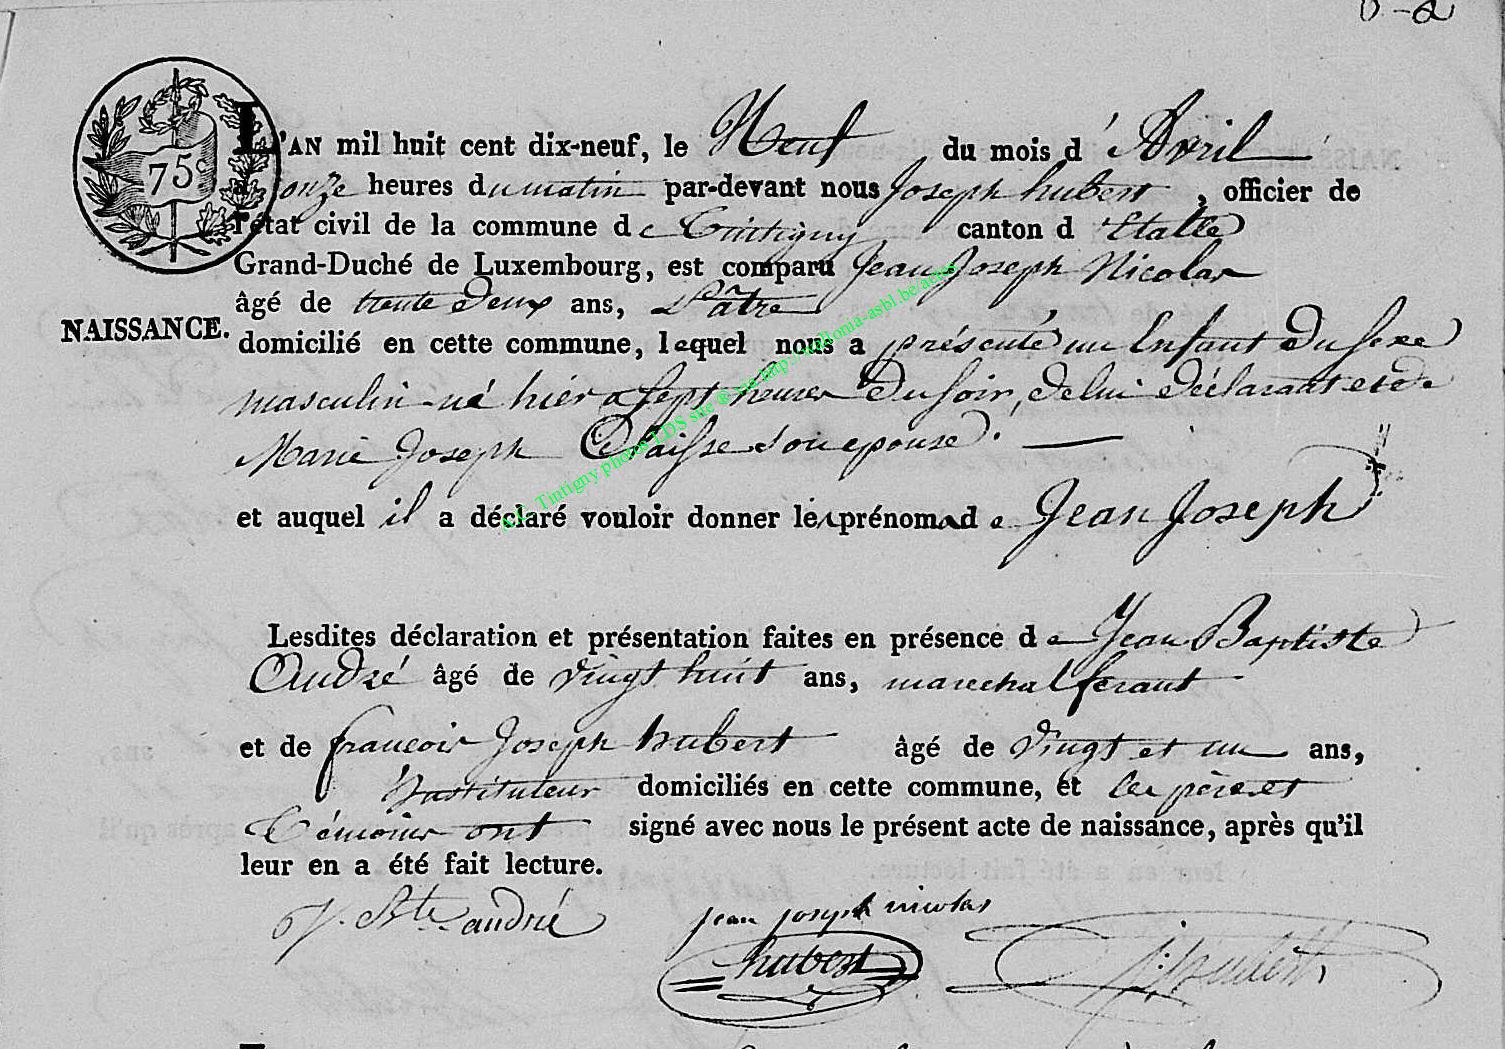 75c
L'AN mil huit cent dix-neuf, le Neuf du mois d' Avril
à onze heures du matin par-devant nous Joseph hubert, officier de
l'état civil de la commune de Tintigny canton d'Etalle
Grand-Duché de Luxembourg, est comparu Jean Joseph Nicolas
âgé de trente deux ans, Pâtre
NAISSANCE.
domicilié en cette commune, lequel nous a présenté un Enfant Du sexe
masculin né hier a sept heures Du soir, de lui déclarant et de
Marie Joseph Claisse son epouse.
et auquel il a déclaré vouloir donner les prénoms de Jean Joseph
Lesdites déclaration et présentation faites en présence de Jean Baptiste
André âgé de vingt huit ans, marechal ferant
et de francois Joseph hubert âgé de vingt et un ans,
Instituteur domiciliés en cette commune, et les père et
Témoins ont signé avec nous le présent acte de naissance, après qu'il
leur en a été fait lecture.
J. Bte andré
jean joseph nicolas
hubert
J: hubert
A.C. Tintigny photos LDS site ® via http://wallonia-asbl.be/actes